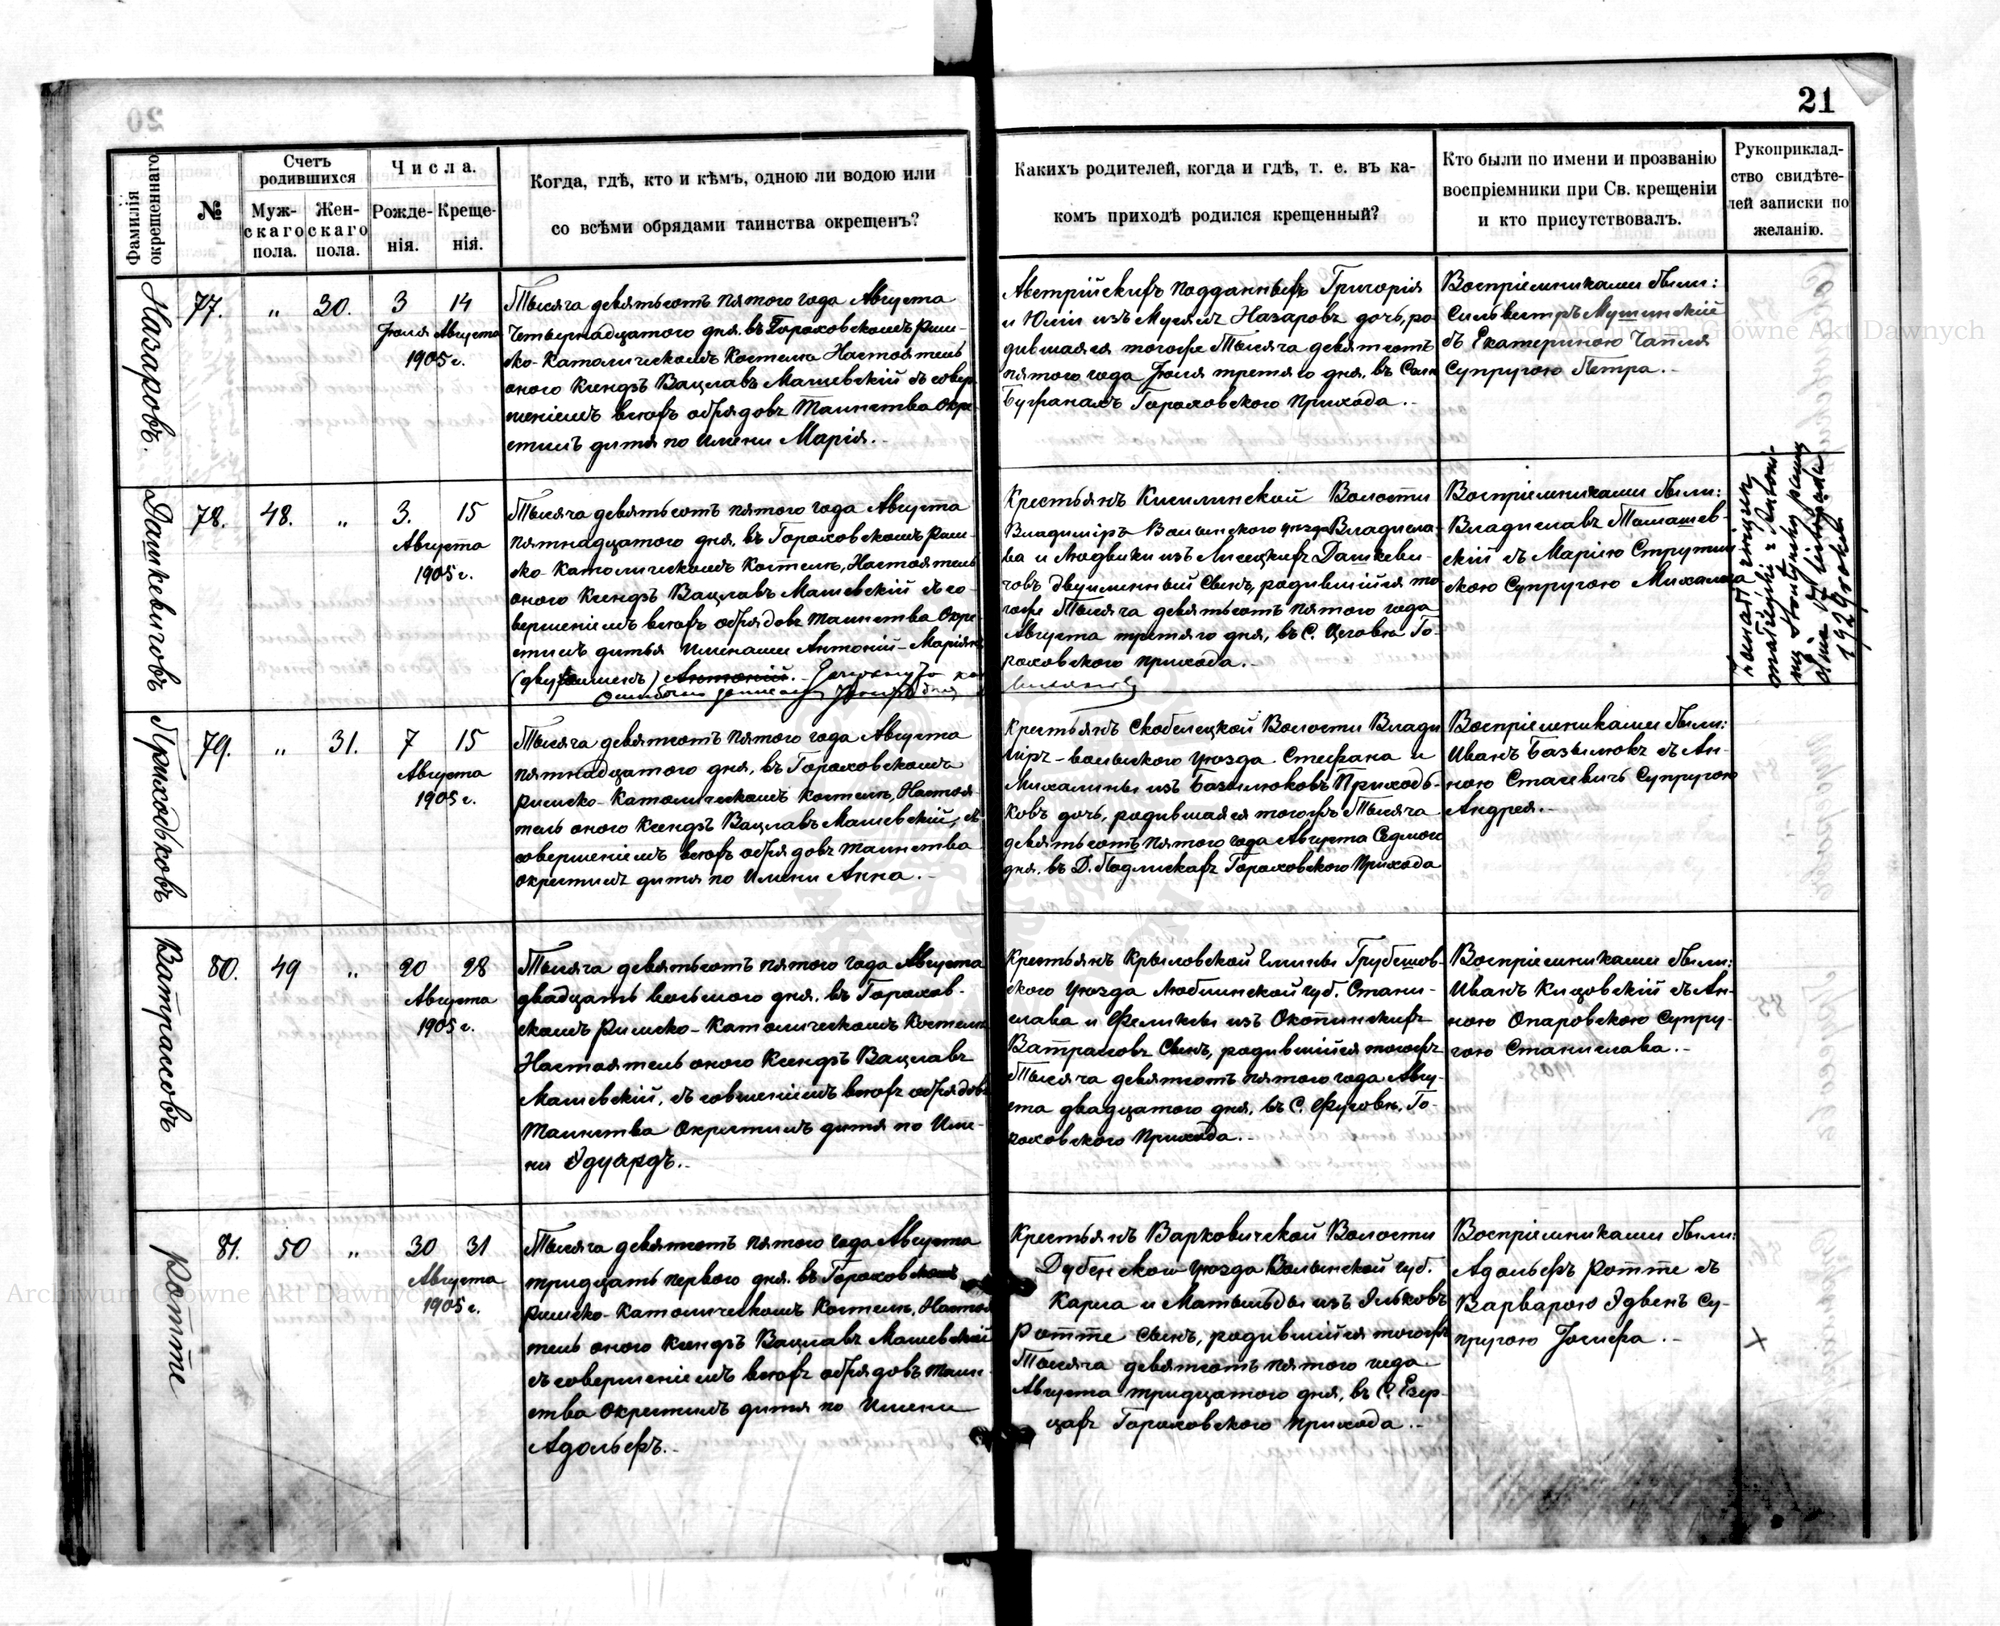 21
Фамилія окрещеннаго
№
Счетъ родившихся
Муж-
скаго
пола.
Жен-
скаго
пола.
Числа.
Рожде-
нія.
Креще-
нія.
Когда, гдѣ, кто и кѣмъ, одною ли водою или
со всѣми обрядами таинства окрещенъ?
Какихъ родителей, когда и гдѣ, т. е. въ ка-
комъ приходѣ родился крещенный?
Кто были по имени и прозванію
воспріемники при Св. крещеніи
и кто присутствовалъ.
Рукоприклад-
ство свидѣте-
лей записки по
желанію.
Назаровъ.
77.
„
30.
3
14
Іюля Августа
1905 г.
Тысяча девятьсотъ пятого года Августа
четырнадцатого дня, въ Гороховскомъ Рим-
ско-Католическомъ Костелѣ Настоятель
оного Ксендзъ Вацлавъ Машевскій съ совер-
шеніемъ всѣхъ обрядовъ Таинства Окре-
стилъ дитя по имени Марія.
Австрійскихъ подданныхъ Григорія
и Юліи изъ Назаровъ дочь, ро-
дившаяся тогожъ Тысяча девятьсотъ
пятого года Іюля третяго дня, въ
Гороховского Прихода.
Воспріемниками были:
Сильвестръ Мушинскій
съ Екатериною Чапля
Супругою Петра.
Дашкевичовъ
78.
48.
„
3.
15
Августа
1905 г.
Тысяча девятьсотъ пятого года Августа
пятнадцатого дня, въ Гороховскомъ Рим-
ско-Католическомъ Костелѣ, Настоятель
оного Ксендзъ Вацлавъ Машевскій съ со-
вершеніемъ всѣхъ обрядовъ таинства Окре-
стилъ дитья именами Антоній-Маріянъ
(двуименъ) Антоній.
Крестьянъ Киселинской Волости
Владиміръ Волынского уѣзда Владисла-
ва и Людвики изъ Лисецкихъ Дашкеви-
човъ двуименный Сынъ, родившійся то-
гожъ Тысяча девятьсотъ пятого года
Августа третяго дня, въ С. Цеговѣ Го-
роховского прихода.
Воспріемниками были:
Владиславъ Томашев-
скій съ Маріею Струтин-
скою Супругою Михаила
1929 roku
Приходьковъ
79.
„
31.
7
15
Августа
1905 г.
Тысяча девятьсотъ пятого года Августа
пятнадцатого дня, въ Гороховскомъ
Римско-Католическомъ Костелѣ, Настоя-
тель оного Ксендзъ Вацлавъ Машевскій, съ
совершеніемъ всѣхъ обрядовъ таинства
окрестилъ дитя по Имени Анна.
Крестьянъ Скобелецкой Волости Влади
міръ-волынского уѣзда Стефана и
Михалины изъ Базылюковъ Приходь-
ковъ дочь, родившаяся тогожъ Тысяча
девятьсотъ пятого года Августа Седмого
дня, въ Д. Подлискахъ Гороховского Прихода
Воспріемниками были:
Иванъ Базылюкъ съ Ан-
ною Стасевичъ Супругою
Андрея.
Ватрасовъ
80.
49
„
20
28
Августа
1905 г.
Тысяча девятьсотъ пятого года Августа
двадцать восьмого дня, въ Горохов-
скомъ Римско-Католическомъ Костелѣ
Настоятель оного Ксендзъ Вацлавъ
Машевскій, съ совшеніемъ всѣхъ обрядовъ
Таинства Окрестилъ дитя по Име-
ни Эдуардъ.
Крестьянъ Крыловской Гмины Грубешов-
ского Уѣзда Люблинской губ. Стани-
слава и Феликсы изъ Окопинскихъ
Ватрасовъ Сынъ, родившійся тогожъ
Тысяча девятьсотъ пятого года Авгу-
ста двадцатого дня, въ С. Фусовѣ, Го-
роховского Прихода.
Воспріемниками были:
Иванъ Кицовскій съ Ан-
ною Опаровскою Супру-
гою Станислава.
Ротте
81.
50
„
30
31
Августа
1905 г.
Тысяча девятьсотъ пятого года Августа
тридцать первого дня, въ Гороховскомъ
Римско-Католическомъ Костелѣ, Настоя
тель оного Ксендзъ Вацлавъ Машевскій
съ совершеніемъ всѣхъ обрядовъ таин-
ства окрестилъ дитя по Имени
Адольфъ.
Крестьянъ Варковичской Волости
Дубенского уѣзда Волынской губ.
Карла и Матыльды изъ Эльковъ
Ротте Сынъ, родившійся тогожъ
Тысяча девятьсотъ пятого года
Августа тридцатого дня, въ С. Езер-
цахъ Гороховского прихода.
Воспріемниками были:
Адольфъ Ротте съ
Варварою Эдвенъ Су-
пругою Іосифа.
Archiwum Główne Akt Dawnych
Archiwum Główne Akt Dawnych